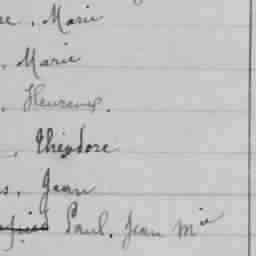 , Marie
, Marie
, Heureux.
, Théodore
, Jean
Paul, Jean Mie